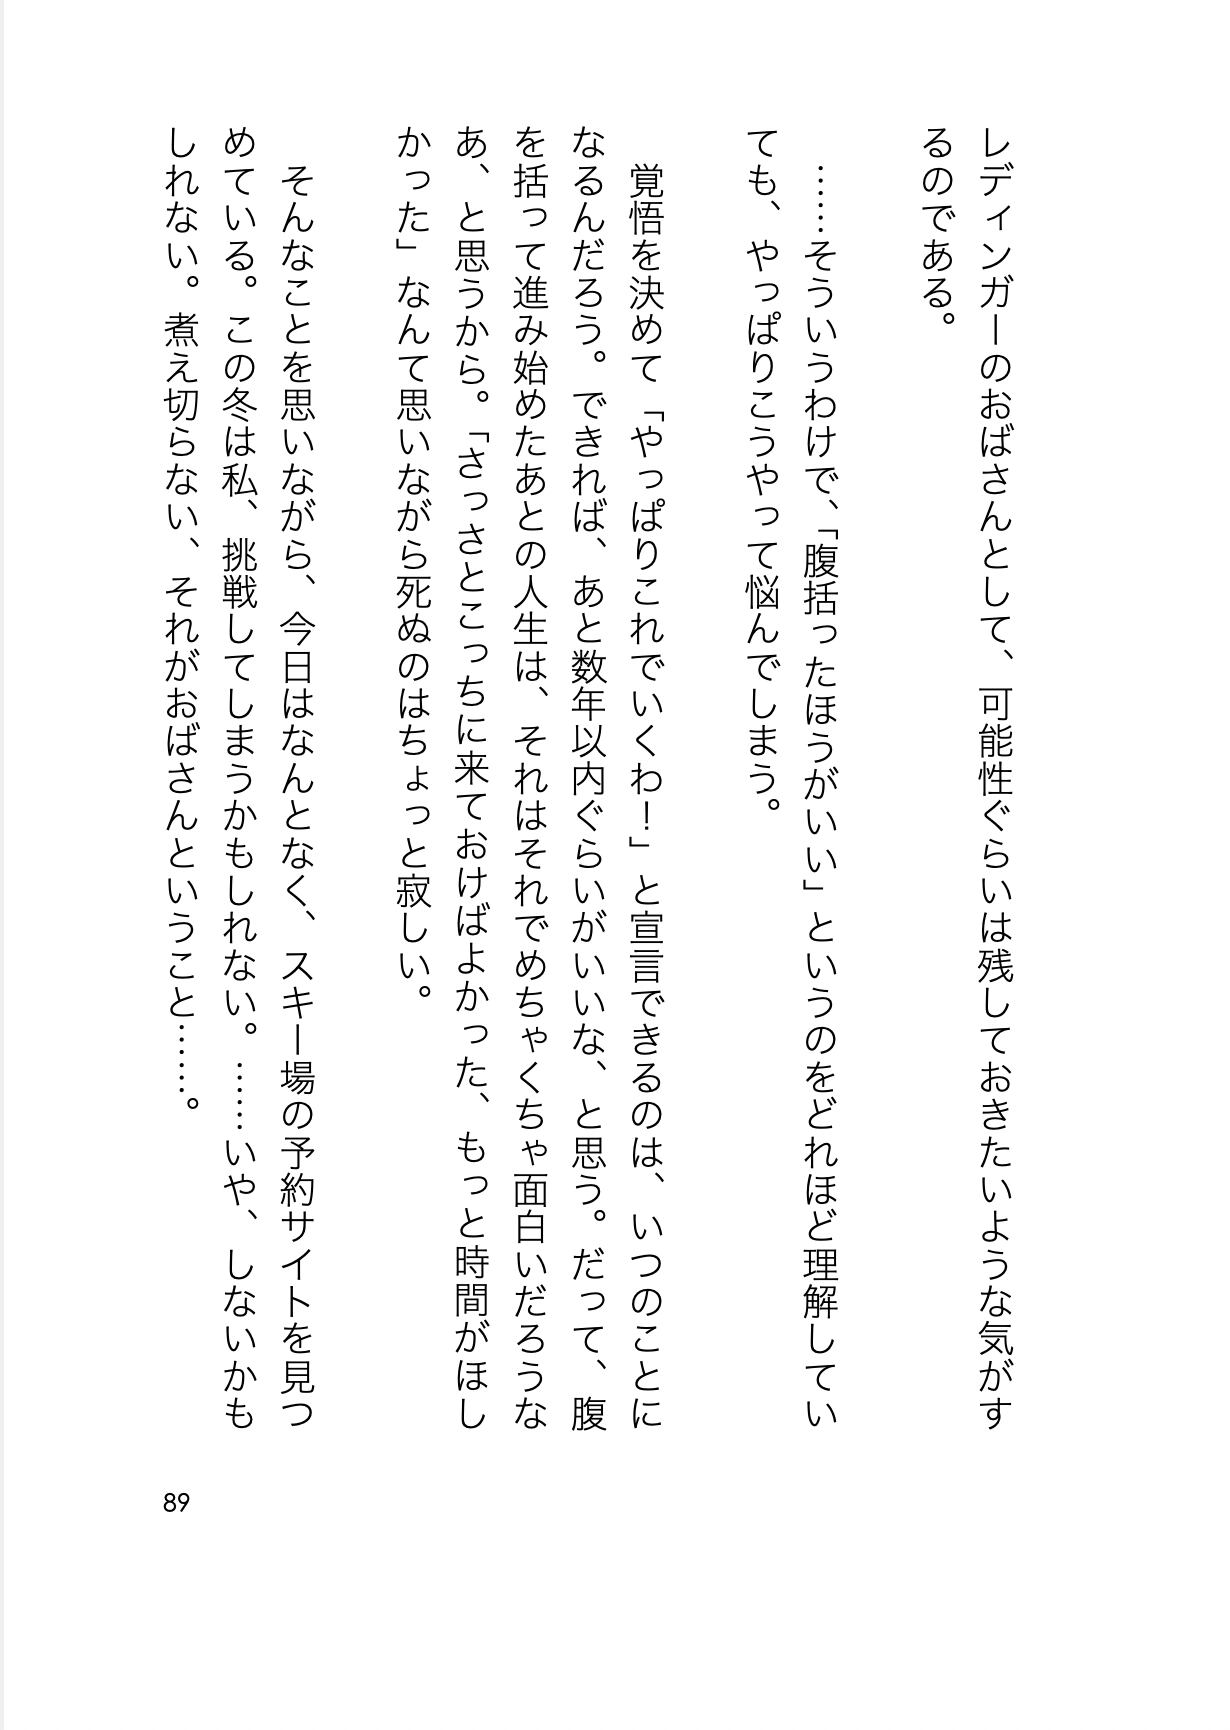 レディンガーのおばさんとして、可能性ぐらいは残しておきたいような気がす
るのである。
……そういうわけで、「腹括ったほうがいい」というのをどれほど理解してい
ても、やっぱりこうやって悩んでしまう。
覚悟を決めて「やっぱりこれでいくわ！」と宣言できるのは、いつのことに
なるんだろう。できれば、あと数年以内ぐらいがいいな、と思う。だって、腹
を括って進み始めたあとの人生は、それはそれでめちゃくちゃ面白いだろうな
あ、と思うから。「さっさとこっちに来ておけばよかった、もっと時間がほし
かった」なんて思いながら死ぬのはちょっと寂しい。
そんなことを思いながら、今日はなんとなく、スキー場の予約サイトを見つ
めている。この冬は私、挑戦してしまうかもしれない。……いや、しないかも
しれない。煮え切らない、それがおばさんということ……。
89